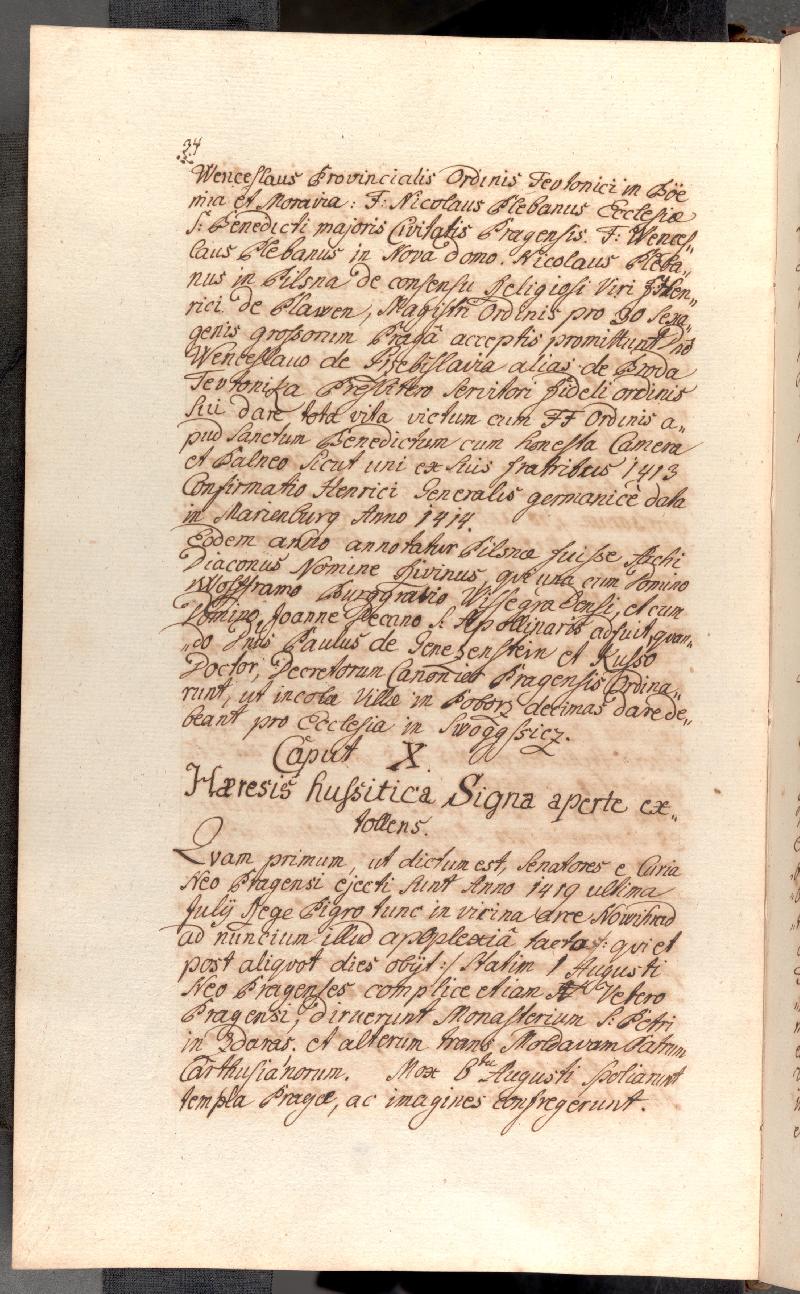 34
Wenceslaus Provincialis Ordinis Teutonici in Böe
mia et Moravia: F: Nicolaus Plebanus Ecclesiæ
S: Benedicti majoris Civitatis Pragensis. F: Wences„
laus Plebanus in Nova domo. Nicolaus Pleba„
nus in Pilsna de consensu Religiosi Viri F: Hen„
rici de Plawen, Magistri Ordinis pro 90 Sexa„
genis grossorum Pragã acceptis promittunt Dno
Wenceslauo de Przibislavia alias de Broda
Teutonika Presbitero servitori fideli ordinis
sui dare tota vita victum cum FF Ordinis a„
pud Sanctum Benedictum cum honesta Camera
et Balneo sicut uni ex suis fratribus 1413
Confirmatio Henrici Generalis germanicè data
in Marienburg Anno 1414.
Eodem anno annotatur Pilsnæ fuisse Archi
Diaconus Nomine Divinus, qui una cum Domino
Wolfframo Burggravio Wissegradensi, et cum
Domino Joanne Decano S: Apollinaris adfuit, quan„
„do Dnus Paulus de Genezenstein et Kusso
Doctor, Decretorum Canonicus Pragensis Ordina„
runt, ut incolæ Villæ in Poborz decimas dare de„
beant pro Ecclesia in Swogssicz.
Caput X.
Hæresis hussitica Signa aperte ex„
tollens.
Quam primum, ut dictum est, Senatores e Curia
Neo Pragensi ejecti sunt Anno 1419 ultima
July Rege Pigro tunc in vicina Arce Nowihrad
ad nuncium illud apoplexiâ tacto /: qui et
post aliquot dies obijt :/ Statim 1 Augusti
Neo Pragenses complice etiam Vetero
Pragensi, diruerunt Monasterium S: Petri
in Zderas. et alterum trans Moldavam Patrum
Carthusianorum. Mox 6tu Augusti spoliarunt
templa Pragæ, ac imagines confregerunt.